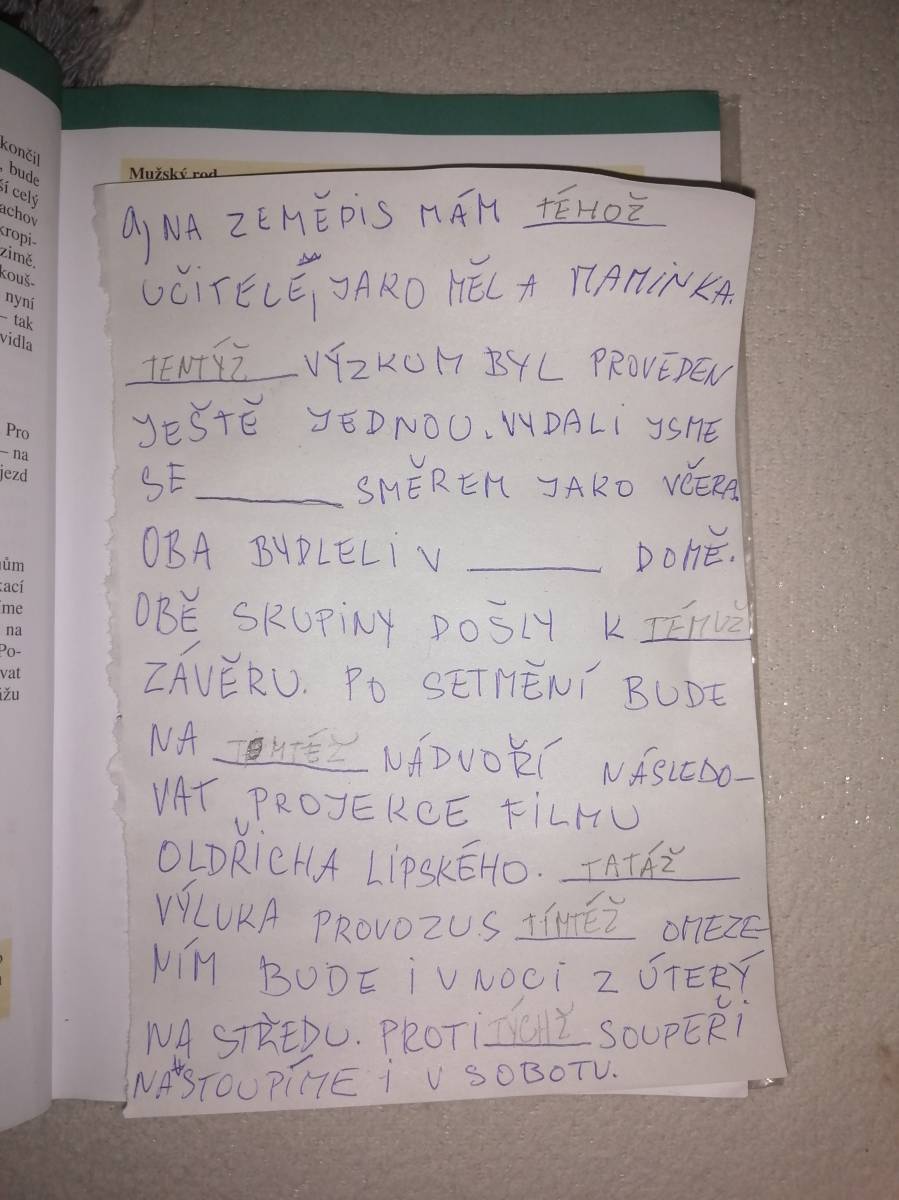 končil
, bude
ší celý
achov
kropi-
zimě.
kouš-
nyní
– tak
vidla
Pro
– na
jezd
ům
kací
íme
na
Po-
vat
ážu
Mužský rod
a, NA ZEMĚPIS MÁM TÉHOŽ
UČITELE, JAKO MĚL A MAMINKA.
TENTÝŽ VÝZKUM BYL PROVEDEN
JEŠTĚ JEDNOU. VYDALI JSME
SE ________ SMĚREM JAKO VČERA.
OBA BYDLELI V ________ DOMĚ.
OBĚ SKUPINY DOŠLY K TÉMUŽ
ZÁVĚRU. PO SETMĚNÍ BUDE
NA TOMTÉŽ NÁDVOŘÍ NÁSLEDO-
VAT PROJEKCE FILMU
OLDŘICHA LIPSKÉHO. TATÁŽ
VÝLUKA PROVOZU S TÍMTÉŽ OMEZE-
NÍM BUDE I V NOCI Z ÚTERÝ
NA STŘEDU. PROTI TÝCHŽ SOUPEŘI
NASTOUPÍME I V SOBOTU.